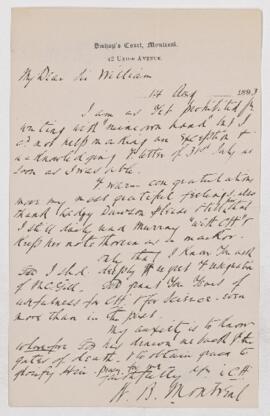 Bishop's Court, Montreal.
42 Union Avenue.
My Dear Sir William
14 Aug 1893
I am as yet prohibited fr
writing with "mine own hand" but I
can not help making an exception &
acknowledging letter of 31st July as
soon as I was able.
warm congratulation
move my most grateful feelings, also
thank Lady Dawson & please tell her
I shall daily and Murray "with CH" &
keep her note therein as a marker.
only that I know you ask
for I shd. deeply regret resignation
of McGill. God grant you years of
usefulness for CH & for Science. even
more than in the past.
My anxiety is to know
wherefore God has drawn me back fr the
gates of death & to obtain grace to
glorify Him. Pray for me
faithfully yrs in CH
W. B. Montreal